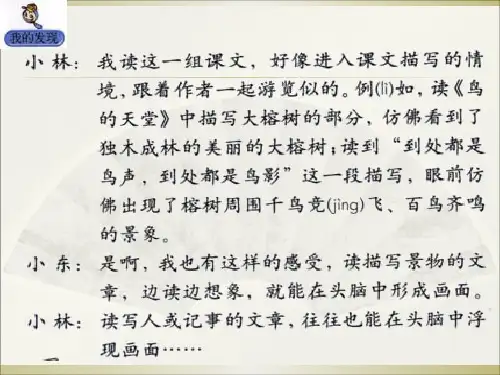 我的发现
小林：我读这一组课文，好像进入课文描写的情
境，跟着作者一起游览似的。例(lì)如，读《鸟
的天堂》中描写大榕树的部分，仿佛看到了
独木成林的美丽的大榕树；读到“到处都是
鸟声，到处都是鸟影”这一段描写，眼前仿
佛出现了榕树周围千鸟竞(jìng)飞、百鸟齐鸣
的景象。
小东：是啊，我也有这样的感受，读描写景物的文
章，边读边想象，就能在头脑中形成画面。
小林：读写人或记事的文章，往往也能在头脑中浮
现画面……